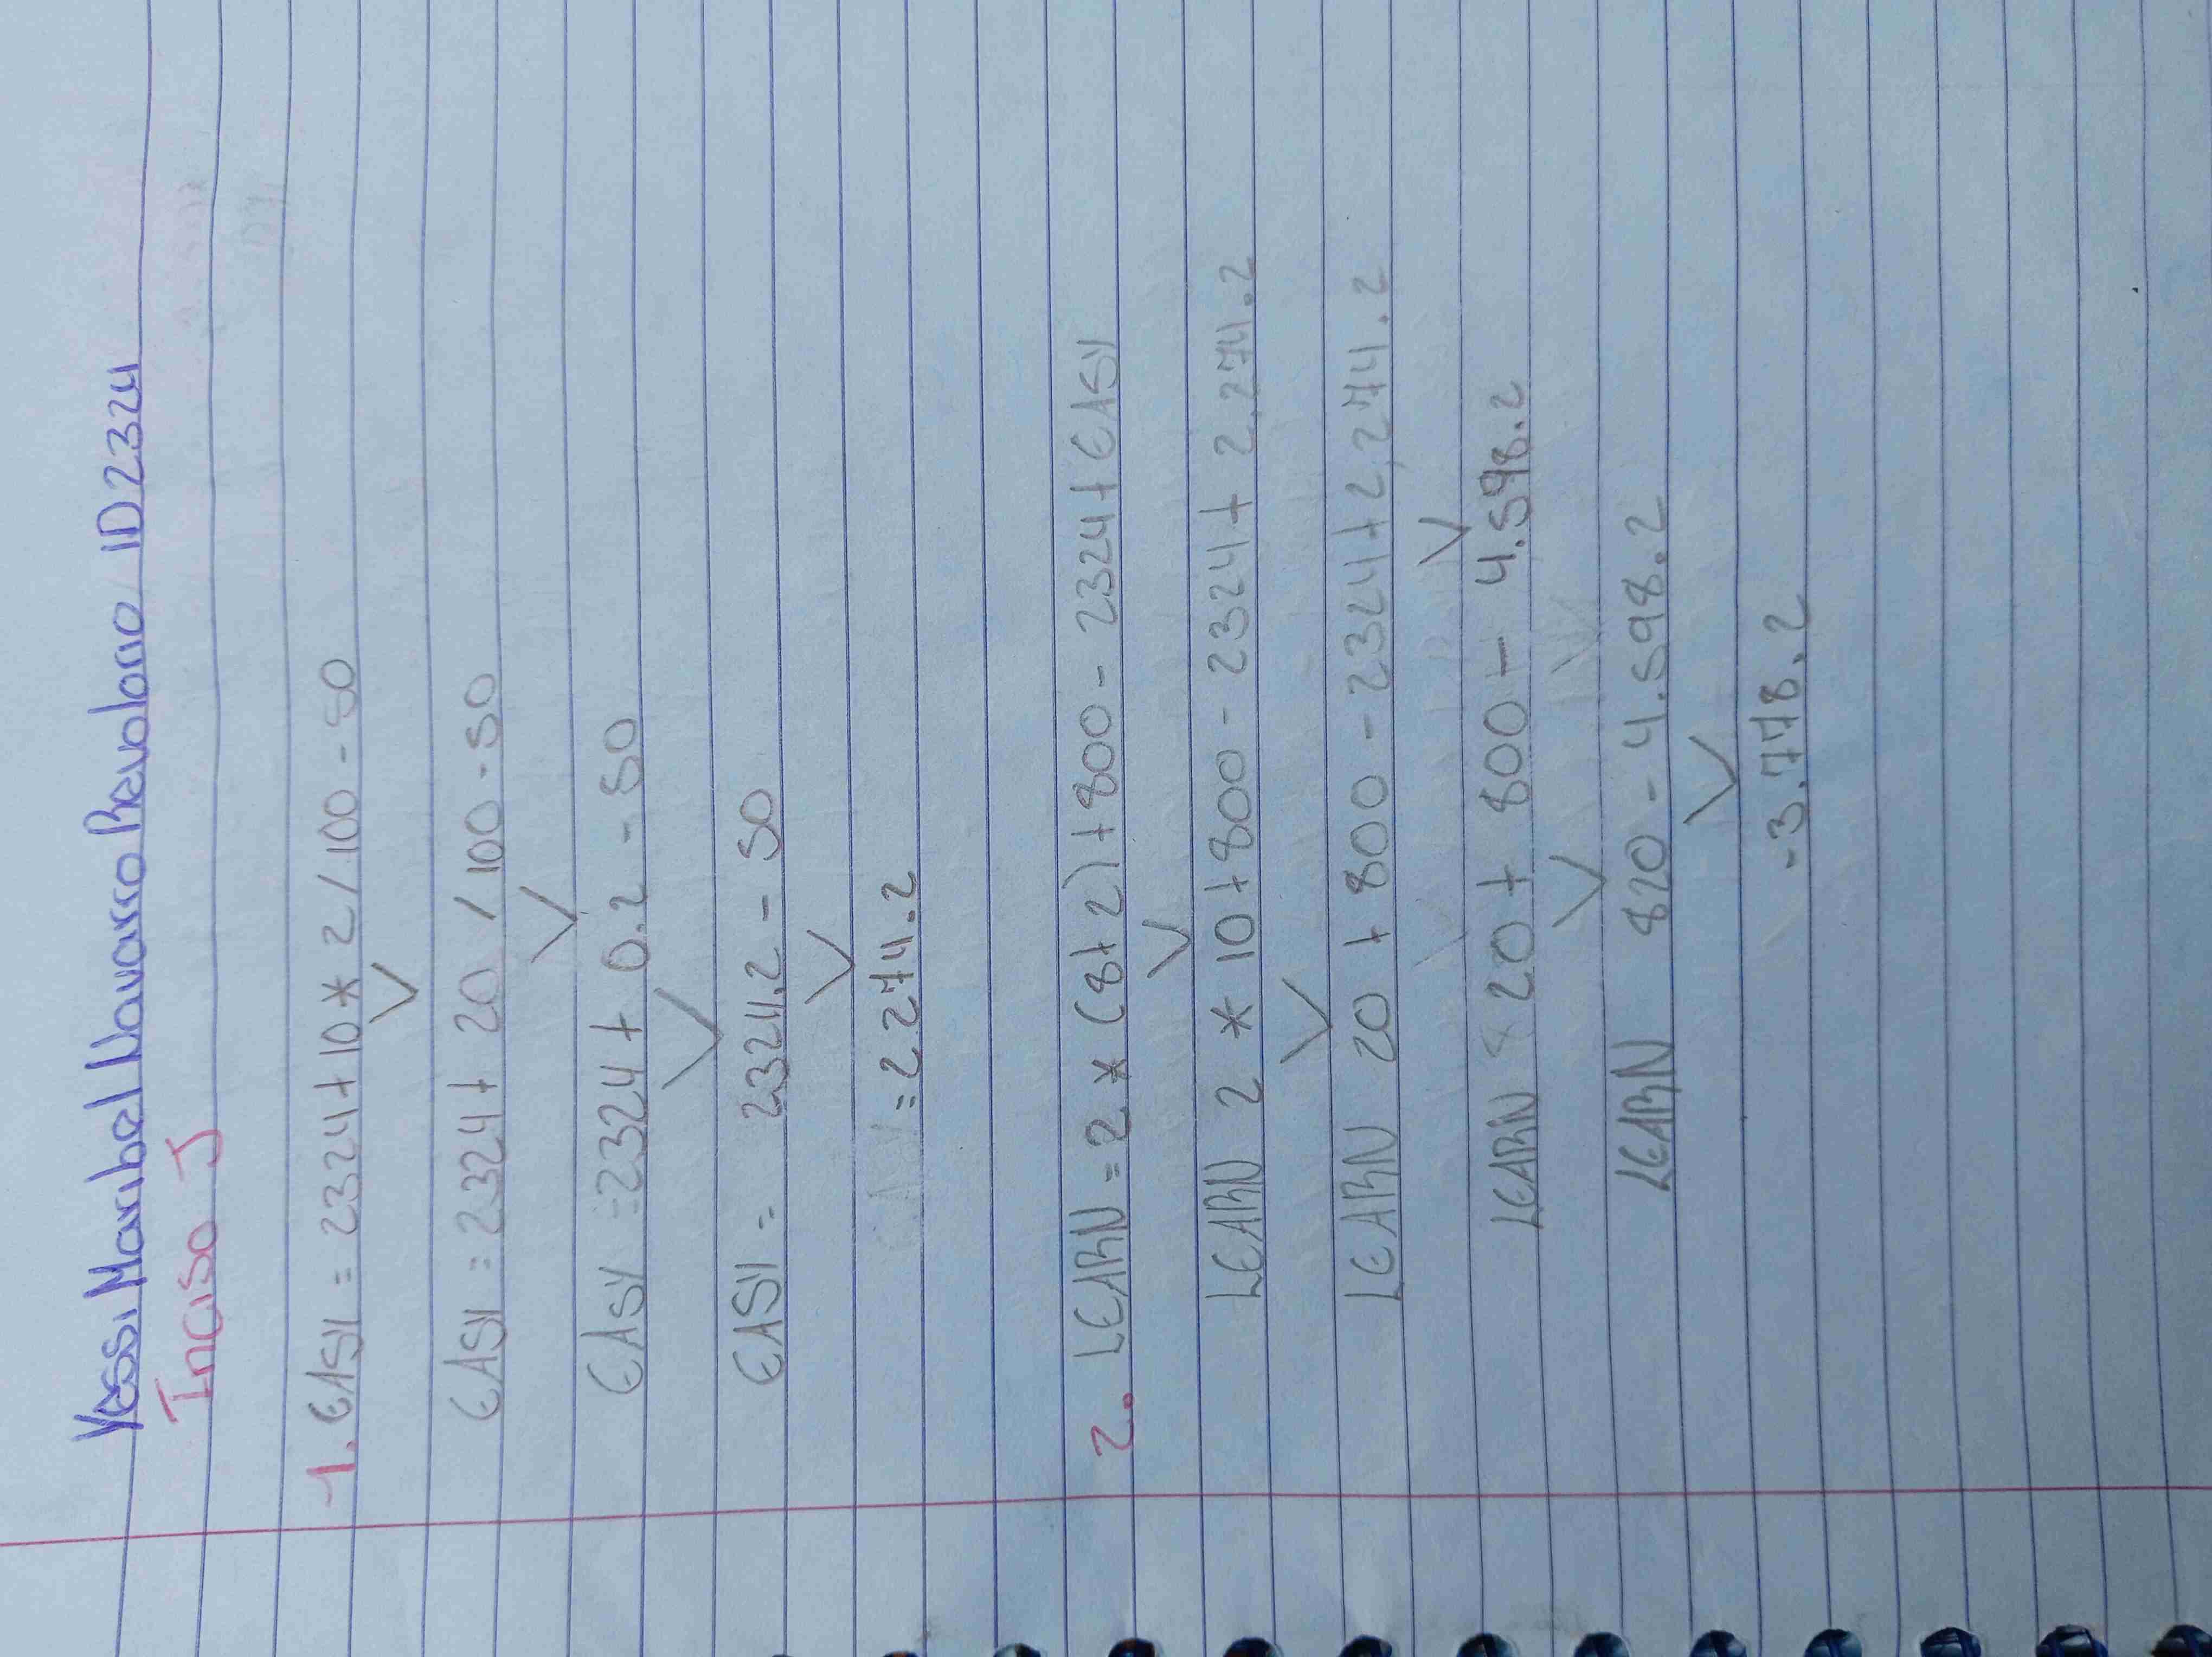 Yessi Maribel Navarro Revolorio ID2324
Inciso J
1. EASY = 2324 + 10 * 2 / 100 - 50
EASY = 2324 + 20 / 100 - 50
EASY = 2324 + 0.2 - 50
EASY = 2324.2 - 50
= 2274.2
2. LEARN = 2 * (8+2) + 800 - 2324 + EASY
LEARN 2 * 10 + 800 - 2324 + 2,274.2
LEARN 20 + 800 - 2324 + 2,274.2
LEARN 20 + 800 - 4.598.2
LEARN 820 - 4.598.2
-3.778.2